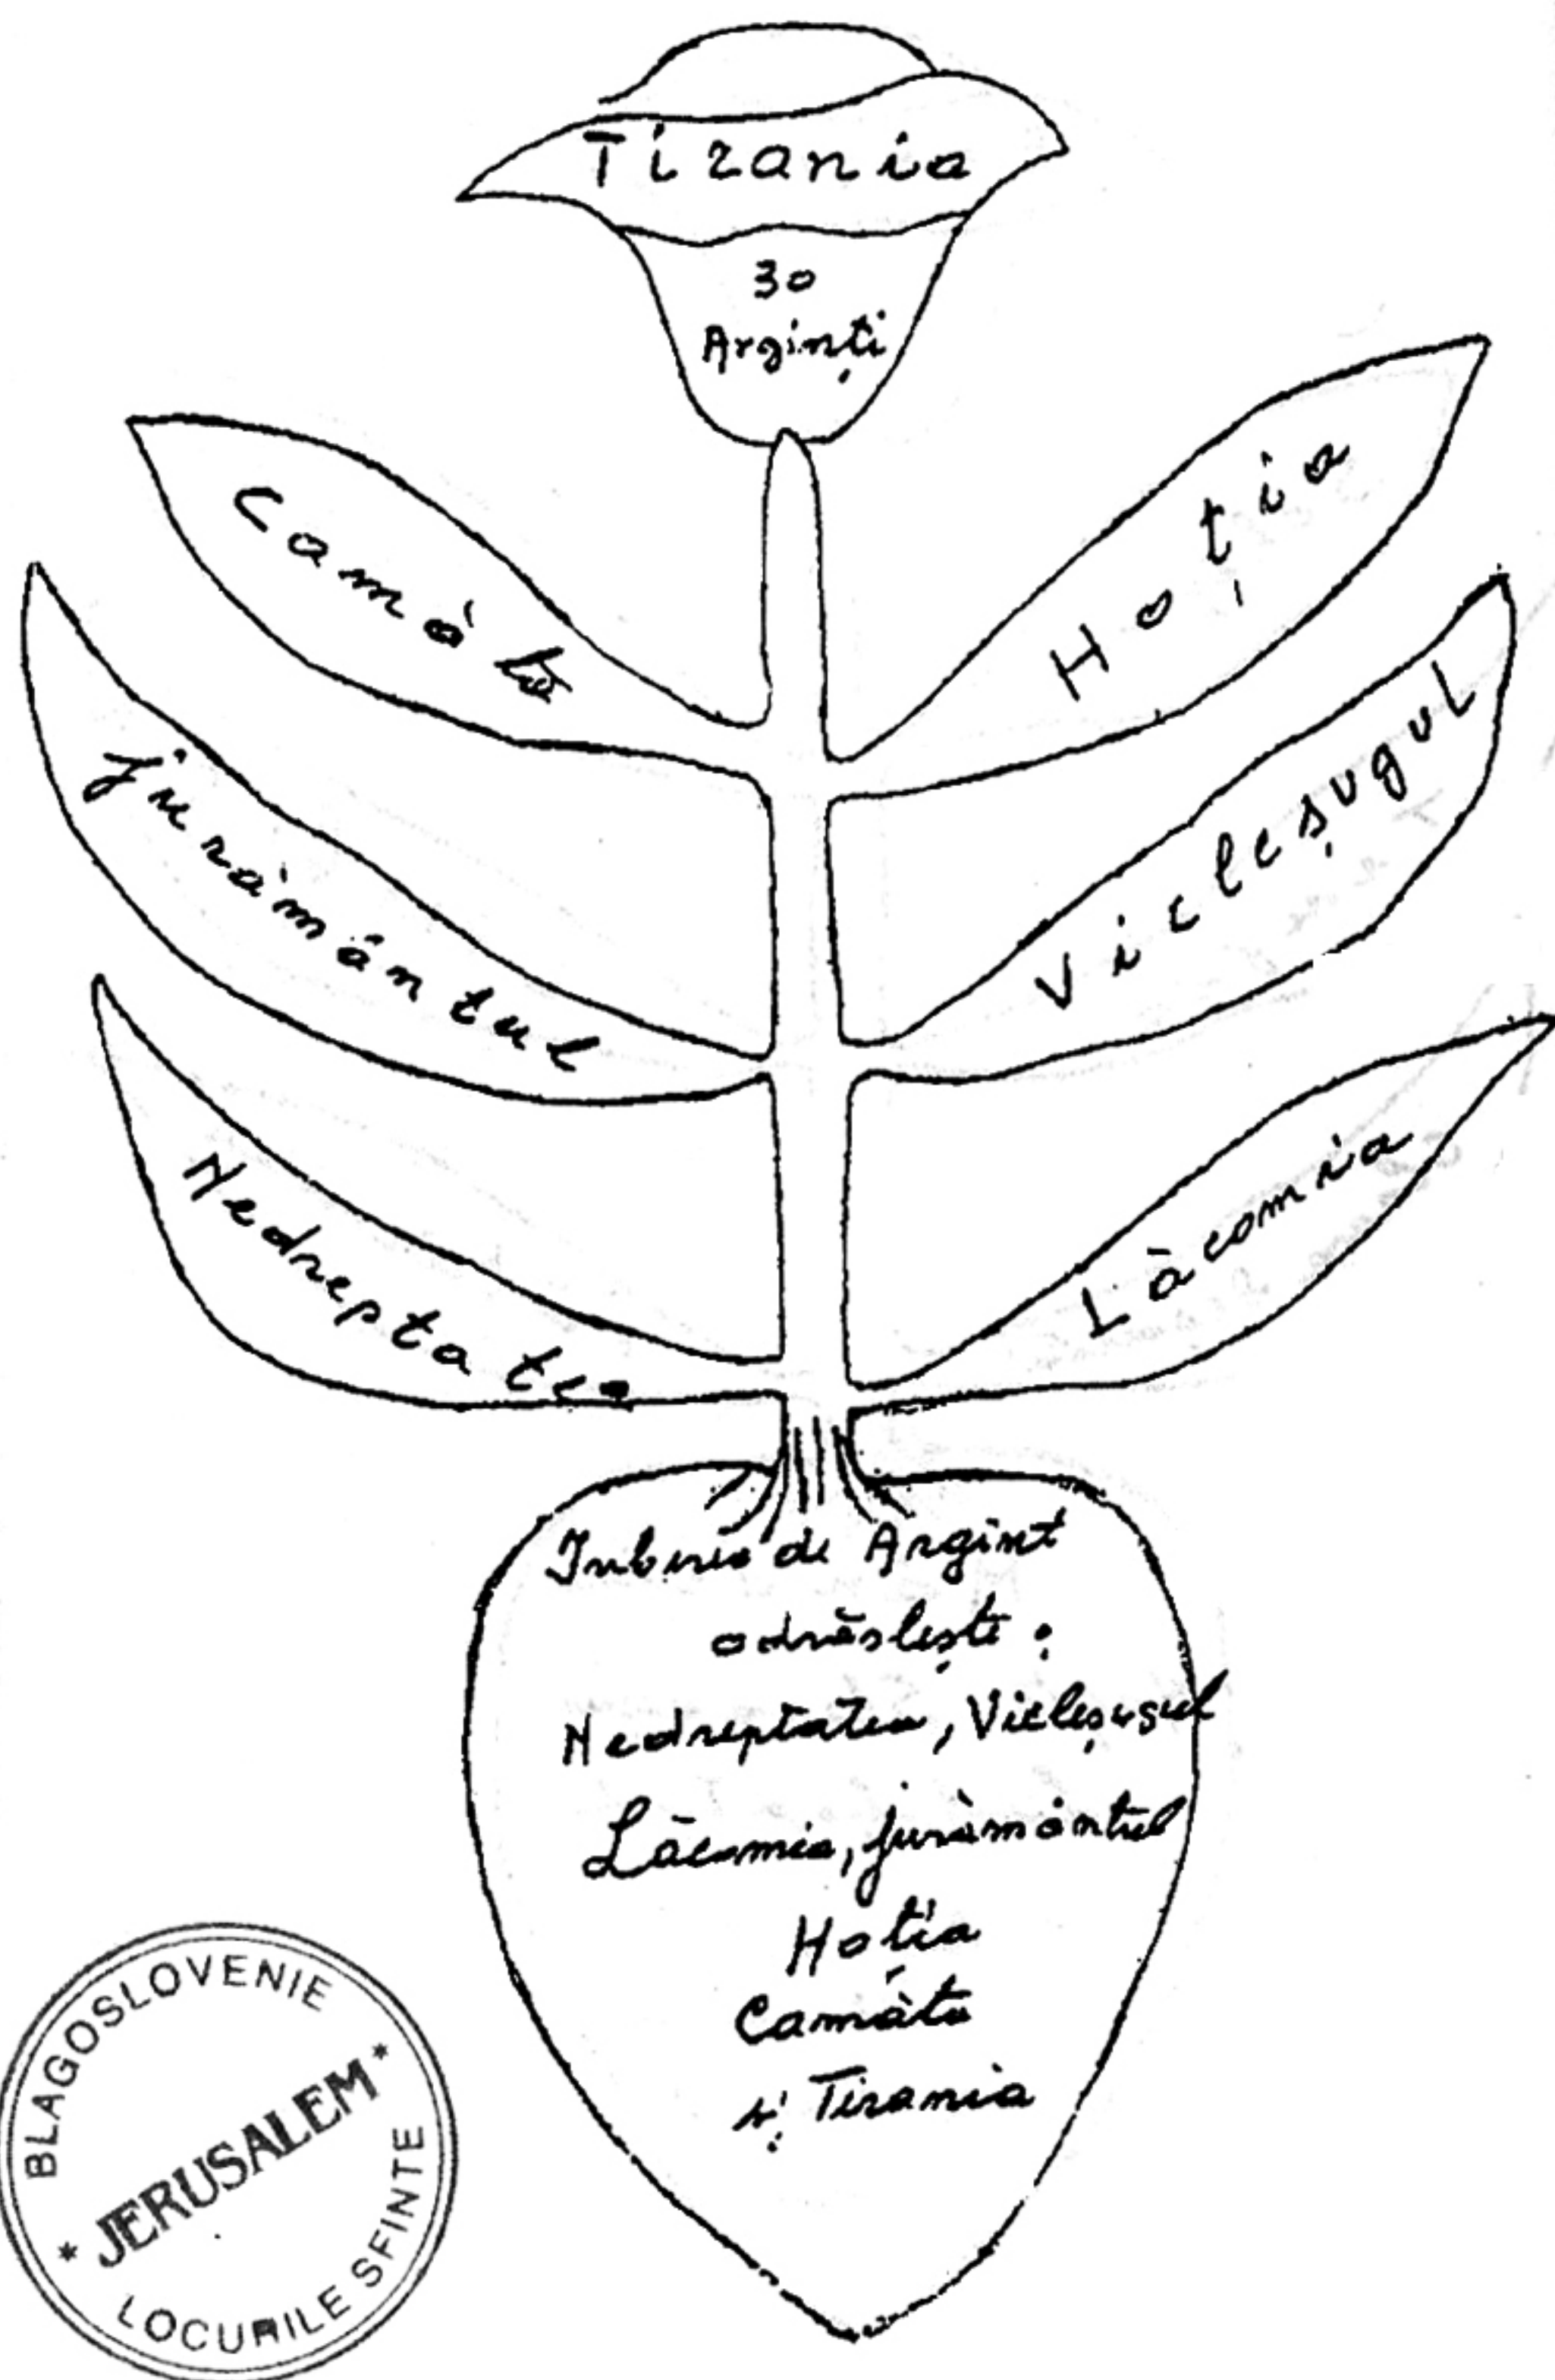 Tirania
30
Arginți
Camàtà
Hoția
Juràmântul
Vicleșugul
Nedreptatea
Làcomia
Iubirea de Argint
odrăslește:
Nedreptatea, Vicleșugul
Lăcomia, juràmântul
Hoția
Camàta
și Tirania
BLAGOSLOVENIE
* JERUSALEM *
LOCURILE SFINTE